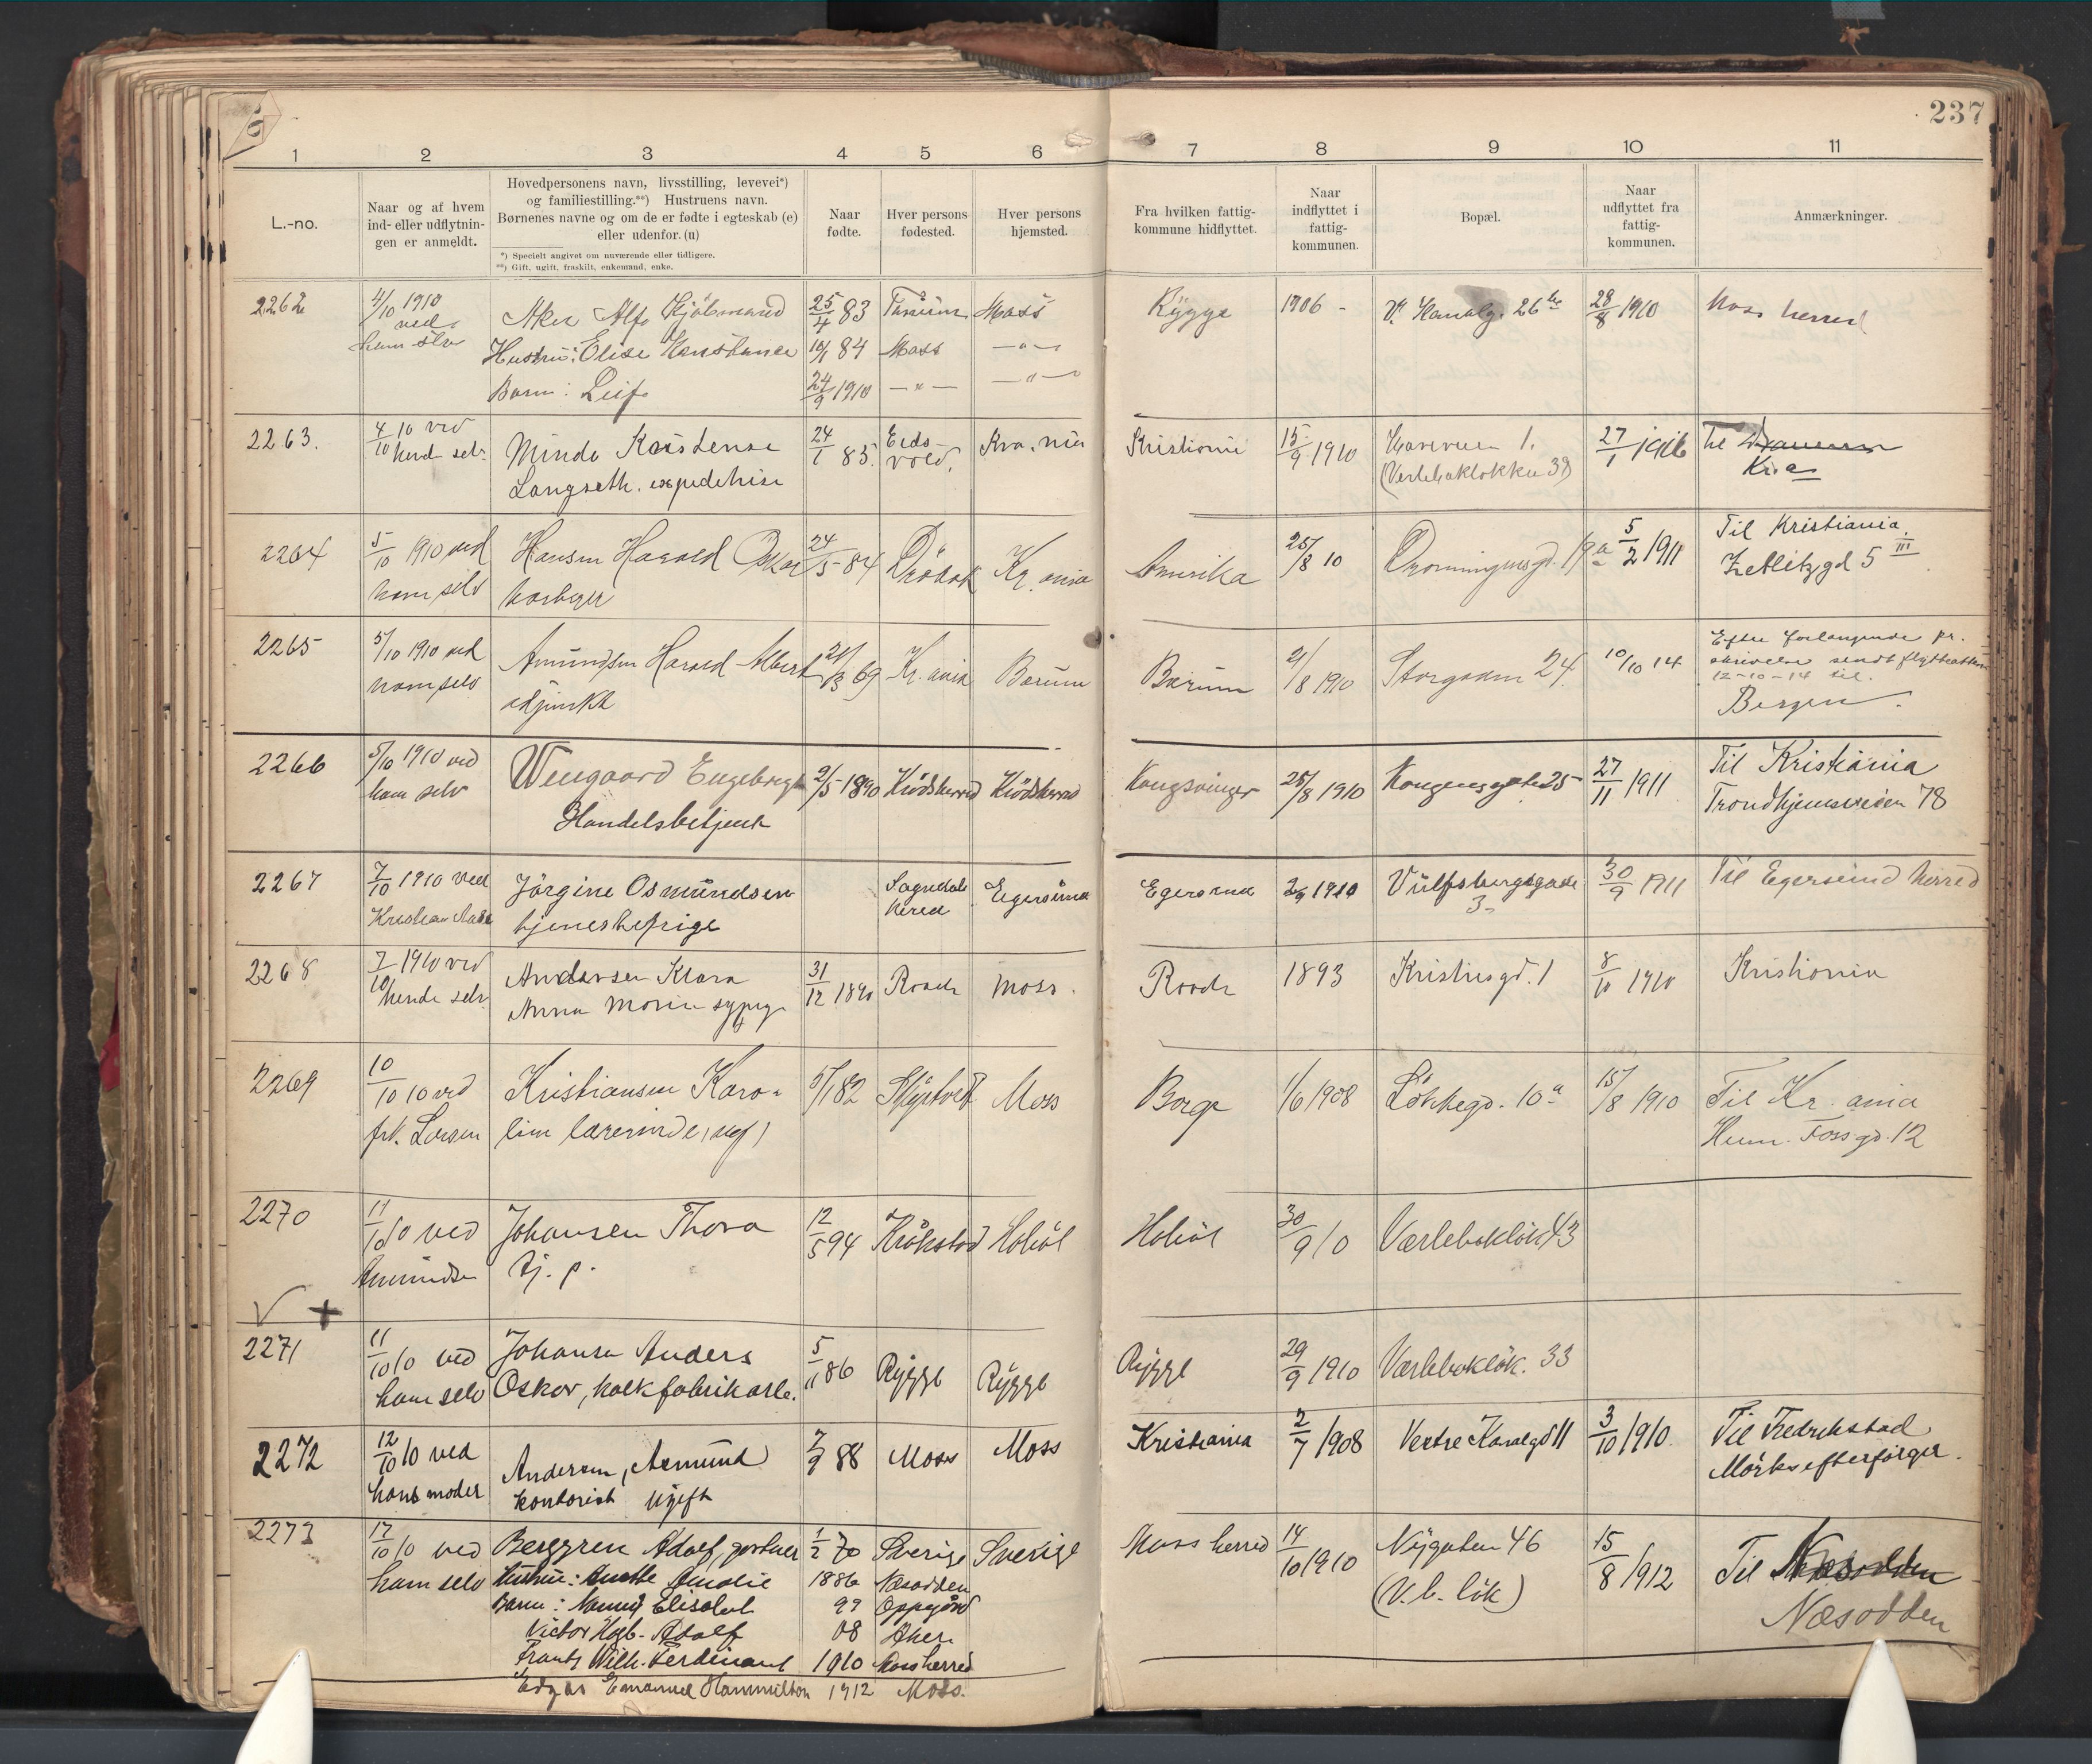 237
1 2 3 4 5 6 7 8 9 10 11
L.-no.
Naar og af hvem
ind- eller udflytnin-
gen er anmeldt.
Hovedpersonens navn, livsstilling, levevei*)
og familiestilling.**) Hustruens navn.
Børnenes navne og om de er fødte i egteskab (e)
eller udenfor. (u)
*) Specielt angivet om nuværende eller tidligere.
**) Gift, ugift, fraskilt, enkemand, enke.
Naar
fødte.
Hver persons
fødested.
Hver persons
hjemsted.
Fra hvilken fattig-
kommune hidflyttet.
Naar
indflyttet i
fattig-
kommunen.
Bopæl.
Naar
udflyttet fra
fattig-
kommunen.
Anmærkninger.
2262 4/10 1910 Aker Alf Kjøbmand 25/4 83 Moss Rygge 1906 - V. Kanalg. 26 28/8 1910 Moss herred
ved
ham selv Hustru: Elise Konstance 10/1 84 Moss —"—
Barn: Leif 24/9 1910 —"— —"—
2263. 4/10 10 ved Minda Kristense 24/1 85. Eids- Kra.nia Kristiania 15/9 1910 1. 27/1 1916 Til
hende selv Langseth. expeditrise vold. (Verlebakløkka 39) Kr.a
2264 5/10 1910 ved Hansen Harald Oskar 24/5 84 Drøbak Kr.ania Amerika 25/8 10 Dronningensgd. 19a 5/2 1911 Til Kristiania.
ham selv Zetlitzgd 5 III
2265 5/10 1910 ved Amundsen Harald Albert 21/3 69 Kr.ania Bærum Bærum 21/8 1910 Storgaden 24. 10/10 14 Efter forlangende pr.
ham selv adjunkt skrivelse sendt flytteattest
12-10-14 til
Bergen.
2266 5/10 1910 ved Wengaard Engebregt 2/5 1890 Krødsherred Krødsherred Kongsvinger 25/8 1910 Kongensgate 25 27/11 1911 Til Kristiania
ham selv Handelsbetjent Trondhjemsveien 78
2267 7/10 1910 ved Jørgine Osmundsen Sogndals Egersund Egersund 2/9 1910 Vulfsbergsgade 30/9 1911 Til Egersund herred
Kristian tjenestepige herred 3-
2268 7/10 1910 ved Andersen Klara 31/12 1890 Raade Moss. Raade 1893 Kristiesgd. 1 8/10 1910 Kristiania
hende selv Anna Marie sypige
2269 10/10 10 ved Kristiansen Karo- 5/1 82 Skiptvedt Moss Borge 1/6 1908 Løkkegd. 10a 15/8 1910 Til Kr.ania
frk. Larsen line lærerinde, ugf. Hum. Fossgd. 12
2270 11/10 10 ved Johansen Thora 12/5 94 Kråkstad Hobøl Hobøl 30/9 10 Værlebakløk 43
Amundsen tj. p.
2271 11/10 10 ved Johansen Anders 5/11 86 Rygge Rygge Rygge 29/9 1910 Værlebakløk. 33
ham selv Oskar, kalkfabrikarb.
2272 12/10 10 ved Andersen, Asmund 7/9 88 Moss Moss Kristiania 2/7 1908 Vestre Kanalgd 11 3/10 1910. Til Fredrikstad
hans moder kontorist ugift Mørks efterfølger.
2273 17/10 10 ved Berggren Adolf, gartner 1/2 70 Sverige Sverige Moss herred 14/10 1910 Nygaten 46 15/8 1912 Til Næsodden
ham selv Hustru: Anette Amalie 1886 Næsodden (V. b. løk) Næsodden
Barn: Elisabet 99 Oppegård
Victor Adolf 08 Aker
Frantz Wilh. Ferdinant 1910 Moss herred
Edgar Emanuel Hammilton 1912 Moss.